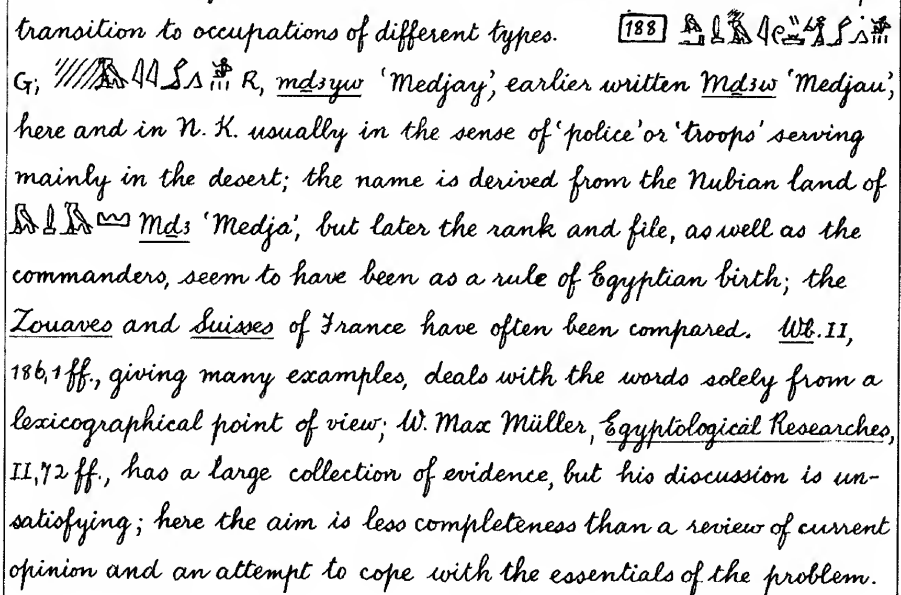 transition to occupations of different types. 188
G; R, mdꜣyw 'Medjay', earlier written Mdꜣw 'Medjau',
here and in N. K. usually in the sense of 'police' or 'troops' serving
mainly in the desert; the name is derived from the Nubian land of
Mdꜣ 'Medja', but later the rank and file, as well as the
commanders, seem to have been as a rule of Egyptian birth; the
Zouaves and Suisses of France have often been compared. Wb. II,
186,1 ff., giving many examples, deals with the words solely from a
lexicographical point of view; W. Max Müller, Egyptological Researches,
II, 72 ff., has a large collection of evidence, but his discussion is un-
satisfying; here the aim is less completeness than a review of current
opinion and an attempt to cope with the essentials of the problem.